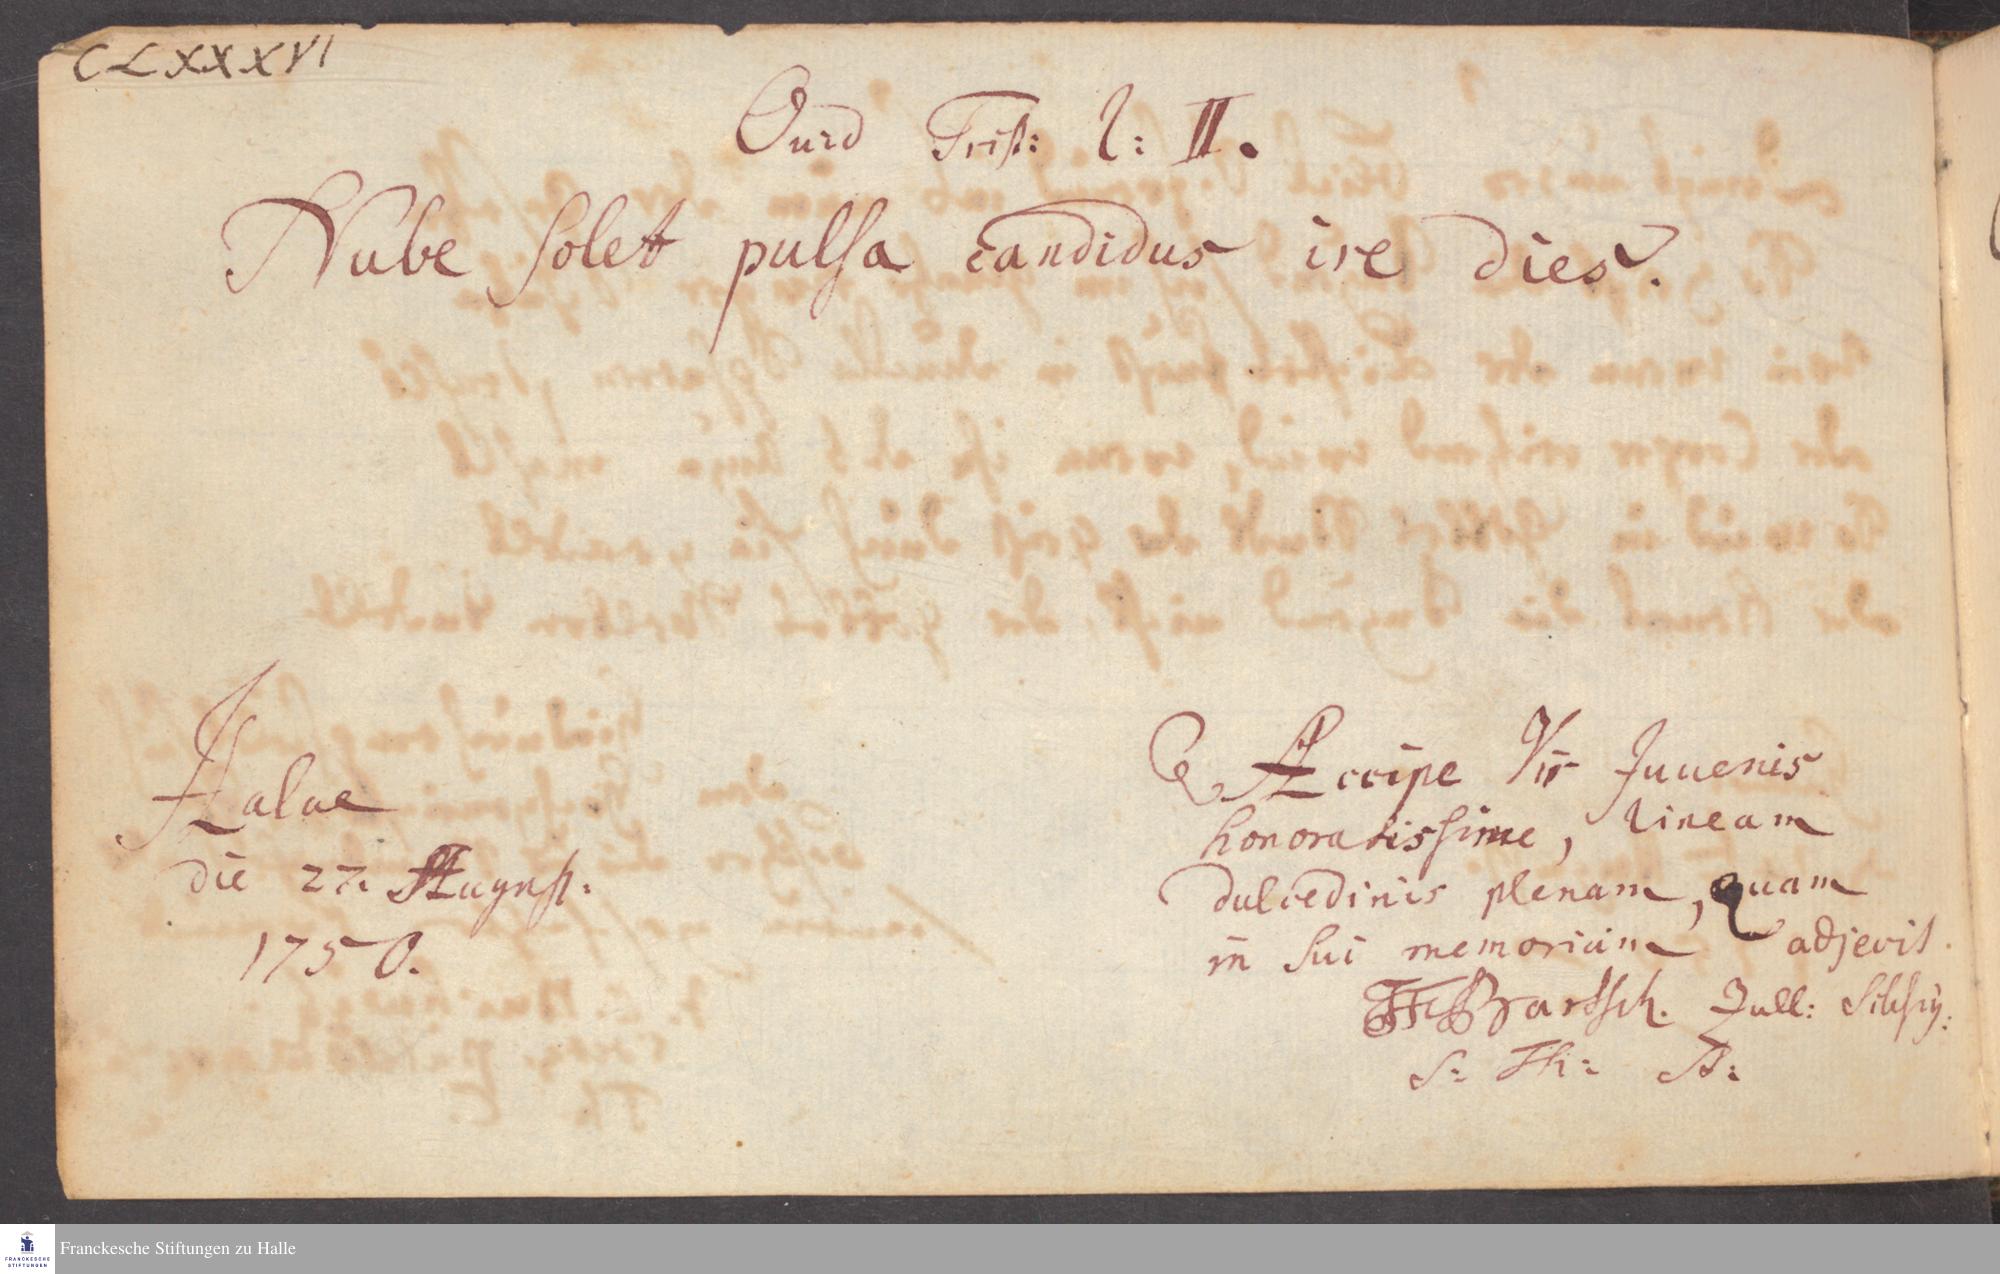 CLXXXVI
Ovid Trist: l: II.
Nube solet pulsa candidus ire dies.
Halae
die 27. August:
1750.
Accipe Vir Juvenis
honoratissime, lineam
dulcedinis plenam, quam
in sui memoriam adjecit
Bartsch. Züll: Siles:
S: Th: St:
Franckesche Stiftungen zu Halle
FRANCKESCHE
STIFTUNGEN